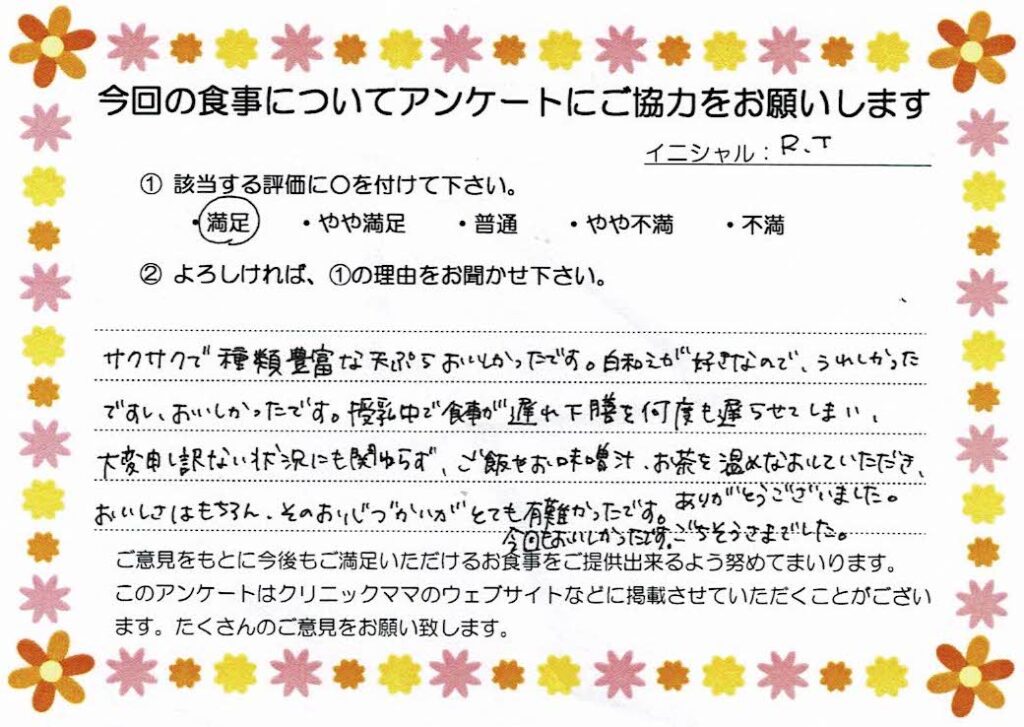 今回の食事についてアンケートにご協力をお願いします
イニシャル：R.T
① 該当する評価に〇を付けて下さい。
・満足 ・やや満足 ・普通 ・やや不満 ・不満
② よろしければ、①の理由をお聞かせ下さい。
サクサクで種類豊富な天ぷらおいしかったです。白和えが好きなので、うれしかった
ですし、おいしかったです。授乳中で食事が遅れ下膳を何度も遅らせてしまい、
大変申し訳ない状況にも関わらず、ご飯やお味噌汁、お茶を温めなおしていただき、
おいしさはもちろん、そのお心づかいがとても有難かったです。ありがとうございました。
今回もおいしかったです。ごちそうさまでした。
ご意見をもとに今後もご満足いただけるお食事をご提供出来るよう努めてまいります。
このアンケートはクリニックママのウェブサイトなどに掲載させていただくことがござい
ます。たくさんのご意見をお願い致します。